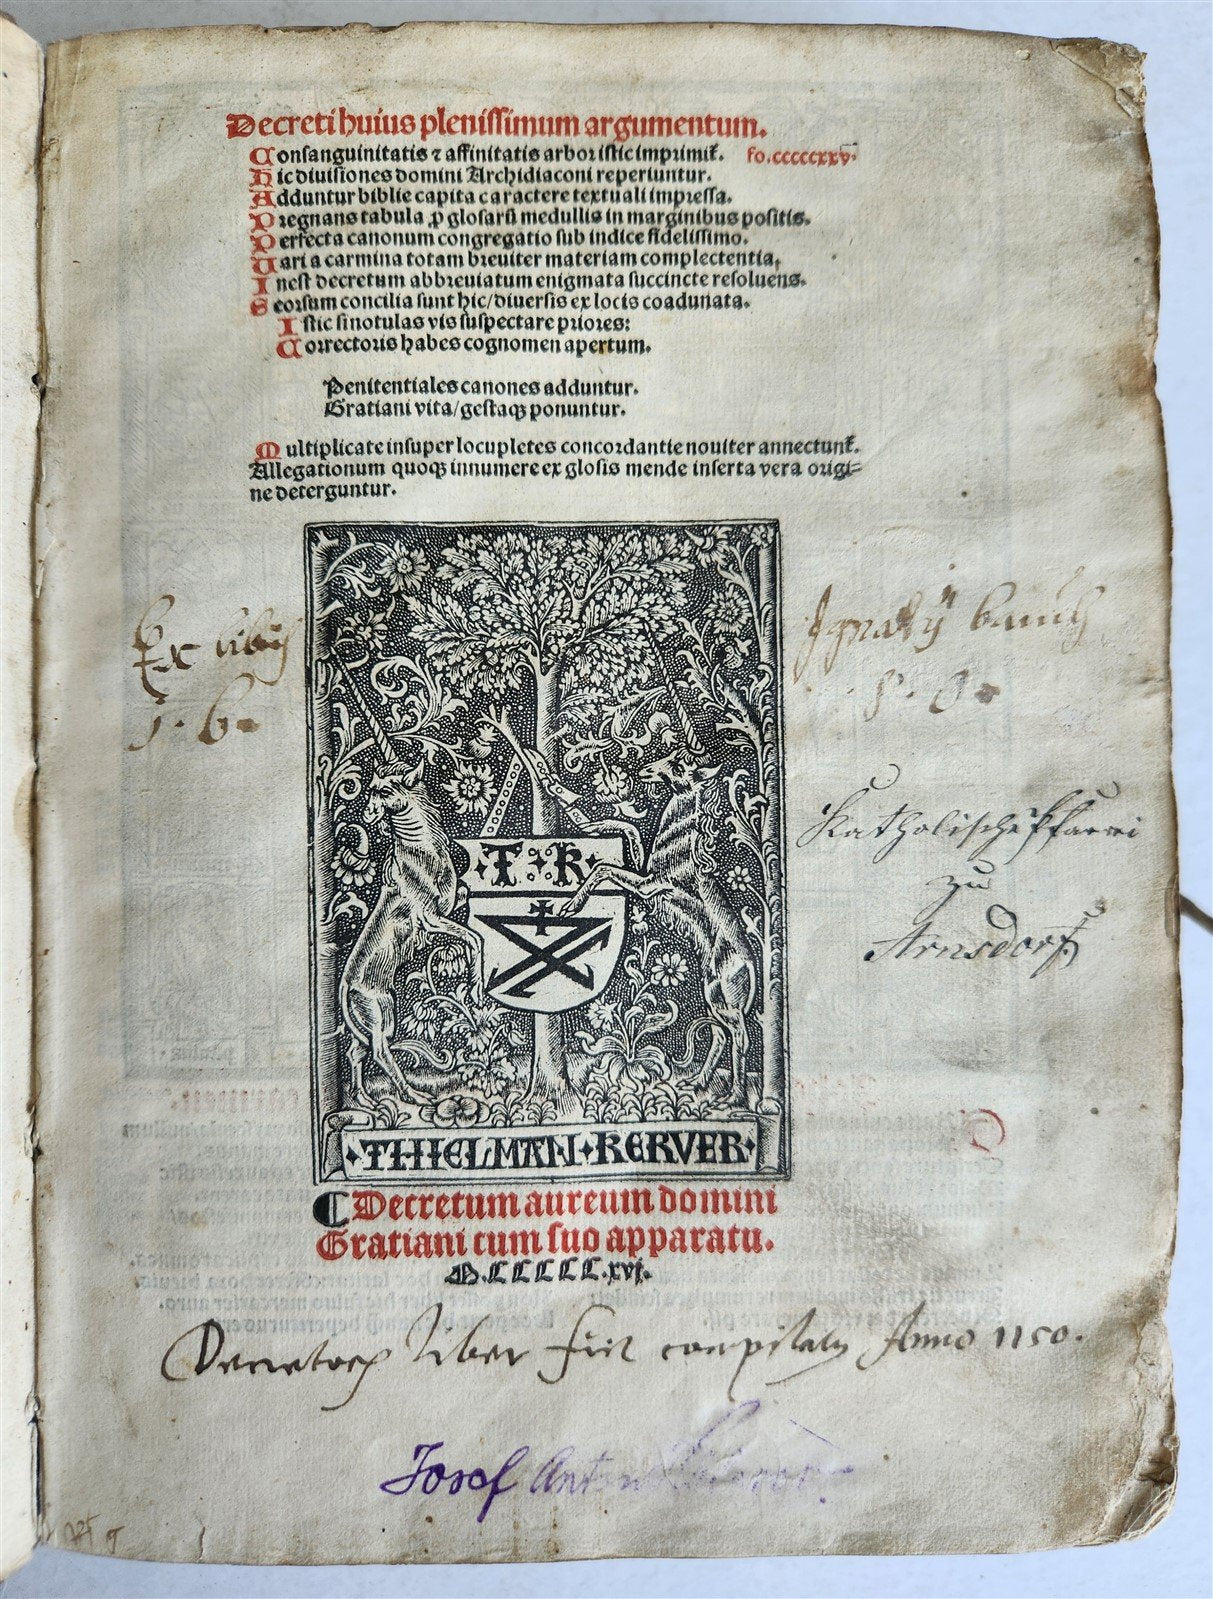 Decreti huius plenissimum argumentum.
Consanguinitatis ⁊ affinitatis arbor istic imprimit̃. fo.cccccxxv.
Hic diuisiones domini Archidiaconi reperiuntur.
Adduntur biblie capita caractere textuali impressa.
Pregnans tabula ꝓ glosarũ medullis in marginibus positis.
Perfecta canonum congregatio sub indice fidelissimo.
Uaria carmina totam breuiter materiam complectentia,
Inest decretum abbreuiatum enigmata succincte resoluens.
Seorsum concilia sunt hic/diuersis ex locis coadunata.
Istic si notulas vis suspectare priores:
Correctoris habes cognomen apertum.
Penitentiales canones adduntur.
Gratiani vita/gestaqꝫ ponuntur.
Multiplicate insuper locupletes concordantie nouiter annectunt̃.
Allegationum quoqꝫ innumere ex glosis mende inserta vera origi-
ne deterguntur.
Ex libris Ignatÿ
Katholische Pfarrei
zu
Arnsdorf.
·T·R·
·THIELMAN·KERVER·
Decretum aureum domini
Gratiani cum suo apparatu.
M.CCCCC.xvi.
Liber fuit Anno 1150.
Josef Anton